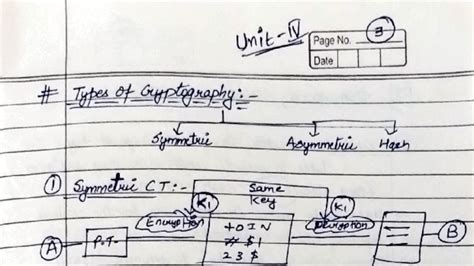 Unit-IV
Page No. 3
Date
# Types of Cryptography:-
Symmetric Asymmetric Hash
① Symmetric CT:-
Same
Key
K1 K1
Encryption Decryption
A P.T. B
TOIN
# $1
23$